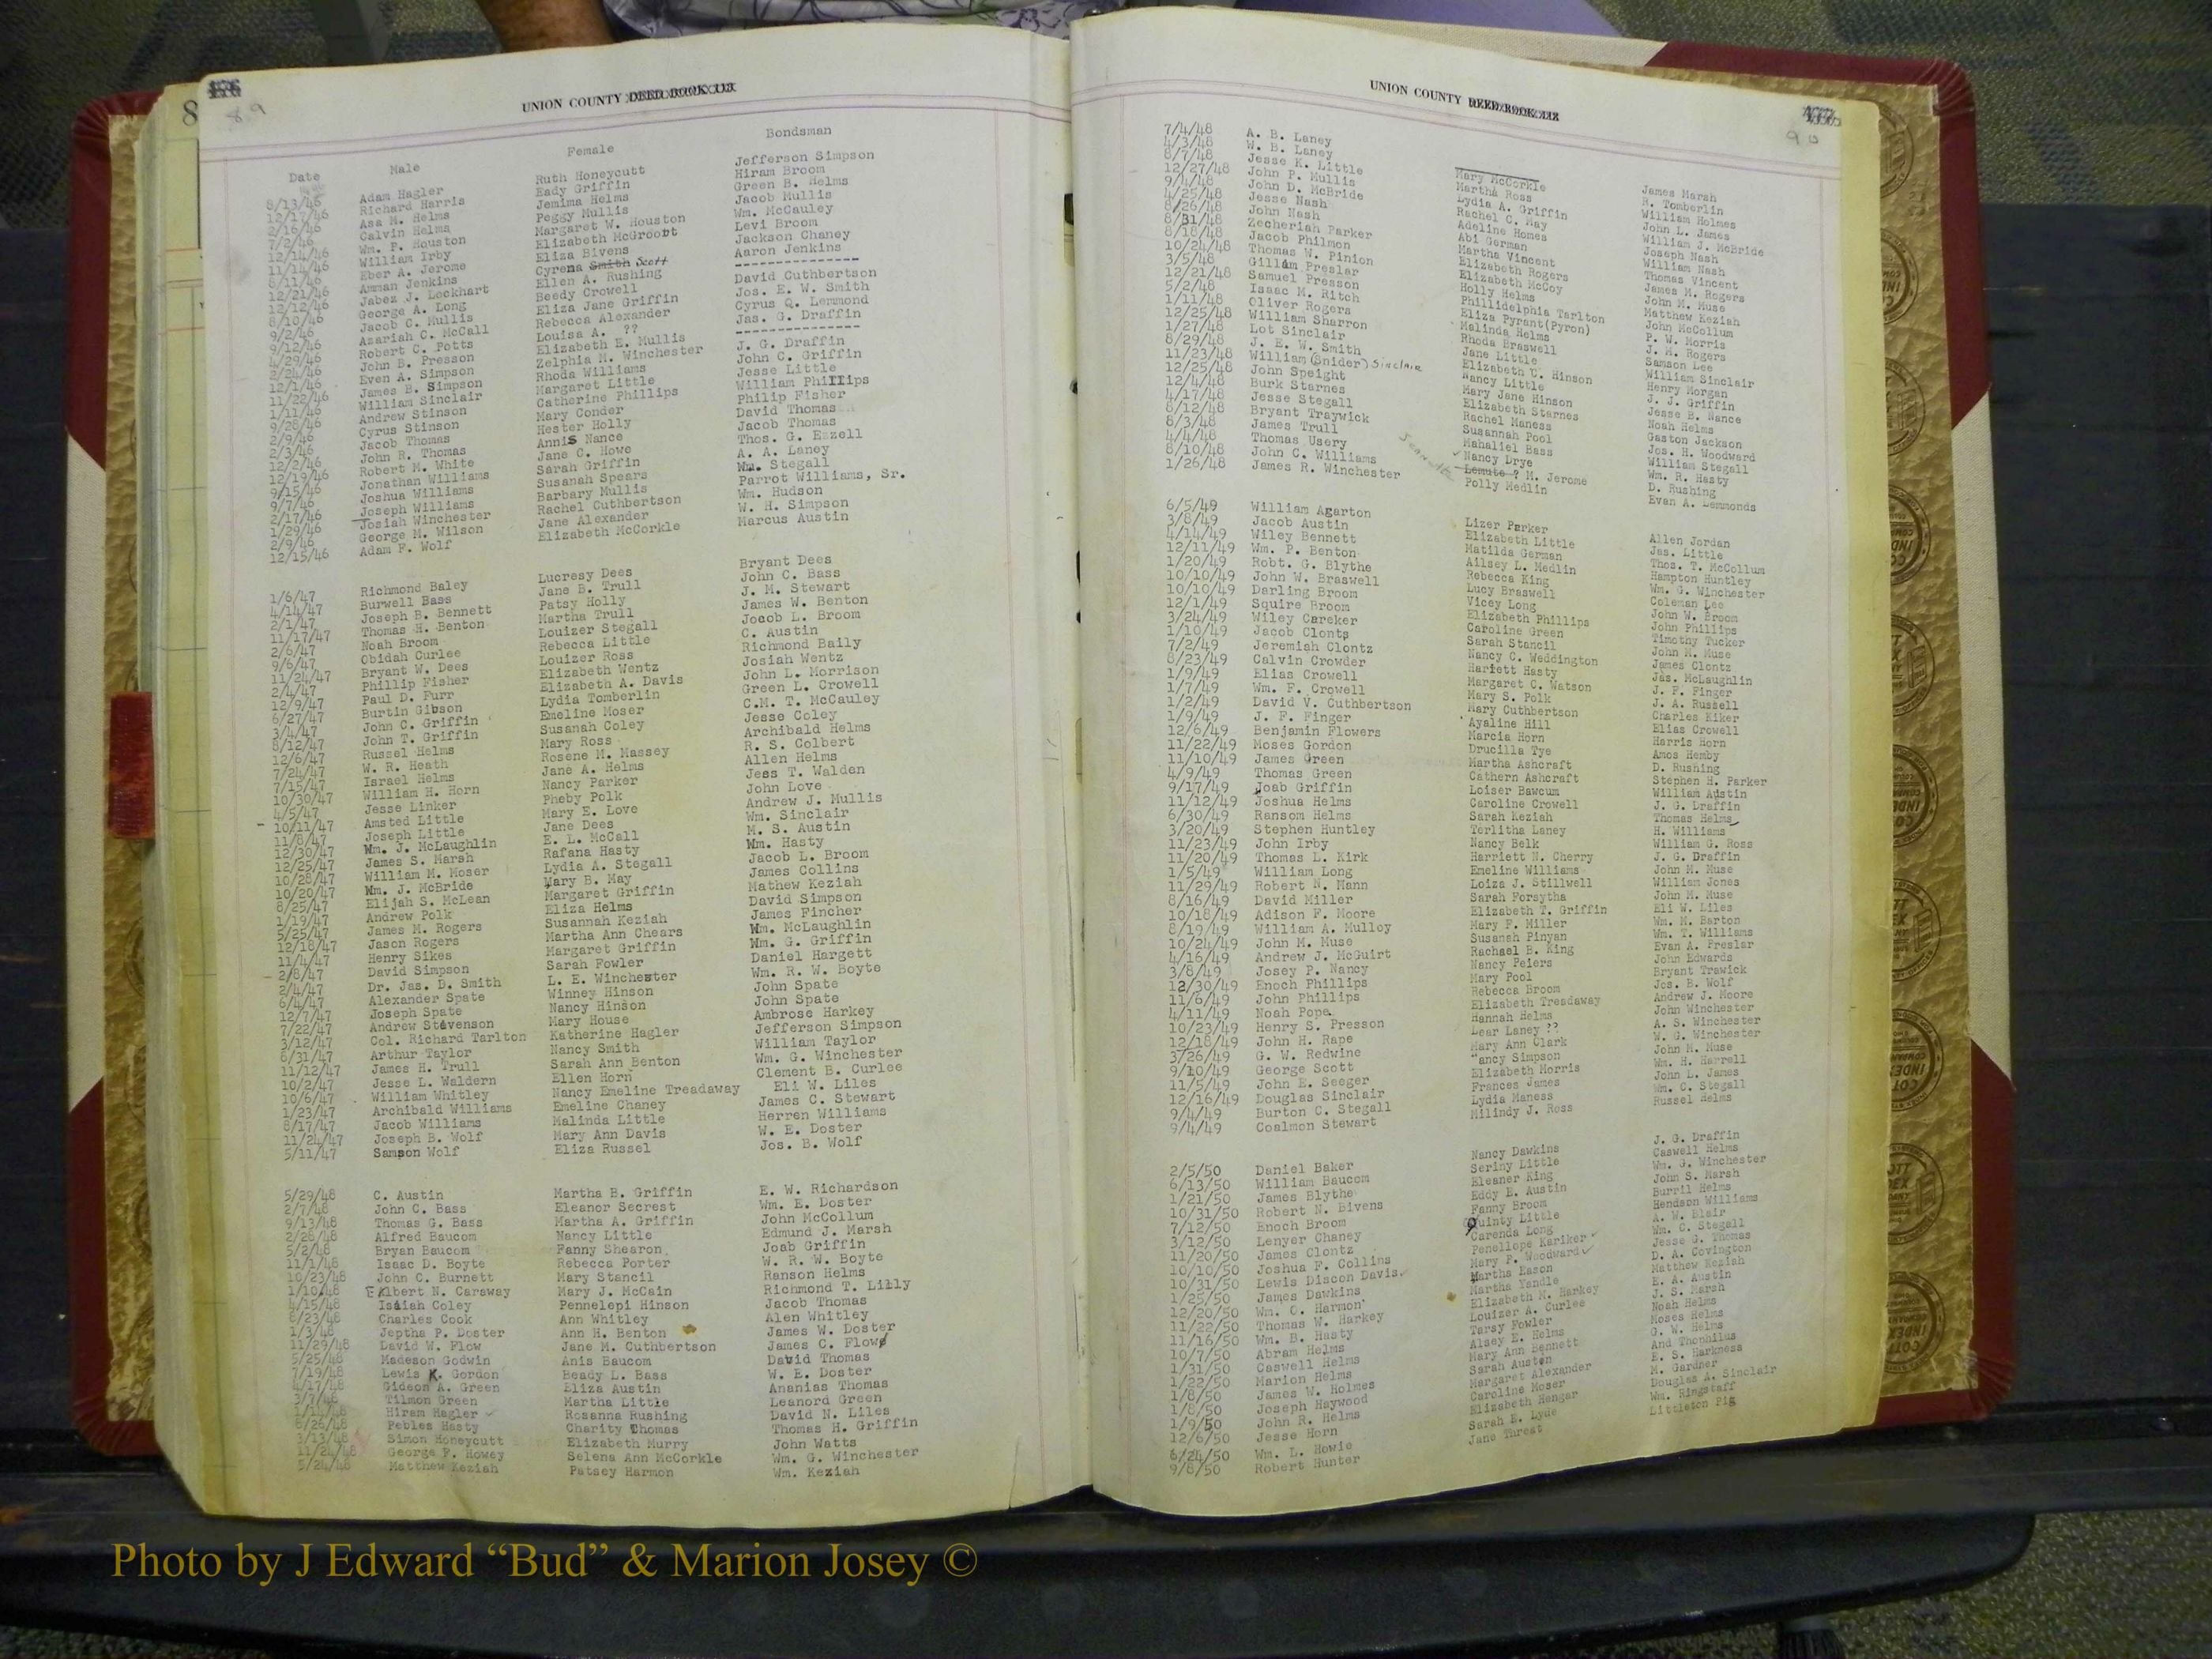 89
UNION COUNTY DEED BOOK 113
Date Male Female Bondsman
8/13/46 Adam Hagler Ruth Honeycutt Jefferson Simpson
12/17/46 Richard Harris Eady Griffin Hiram Broom
2/16/46 Asa M. Helms Jemima Helms Green B. Helms
7/2/46 Calvin Helms Peggy Mullis Jacob Mullis
12/14/46 Wm. P. Houston Margaret W. Houston Wm. McCauley
11/14/46 William Irby Elizabeth McGroovt Levi Broom
8/11/46 Eber A. Jerome Eliza Bivens Jackson Chaney
12/21/46 Amman Jenkins Cyrena Smith Scott Aaron Jenkins
12/12/46 Jabez J. Lockhart Ellen A. Rushing --------------
8/10/46 George A. Long Beedy Crowell David Cuthbertson
9/2/46 Jacob C. Mullis Eliza Jane Griffin Jos. E. W. Smith
9/12/46 Azariah C. McCall Rebecca Alexander Cyrus Q. Lemmond
4/29/46 Robert C. Potts Louisa A. ?? Jas. G. Draffin
2/24/46 John B. Presson Elizabeth E. Mullis --------------
12/1/46 Even A. Simpson Zelphia M. Winchester J. G. Draffin
11/22/46 James B. Simpson Rhoda Williams John C. Griffin
1/11/46 William Sinclair Margaret Little Jesse Little
9/28/46 Andrew Stinson Catherine Phillips William Phillips
2/9/46 Cyrus Stinson Mary Conder Philip Fisher
2/3/46 Jacob Thomas Hester Holly David Thomas
12/2/46 John R. Thomas Annis Nance Jacob Thomas
12/19/46 Robert M. White Jane C. Howe Thos. G. Ezzell
9/15/46 Jonathan Williams Sarah Griffin A. A. Laney
9/7/46 Joshua Williams Susanah Spears Wm. Stegall
2/17/46 Joseph Williams Barbary Mullis Parrot Williams, Sr.
1/29/46 Josiah Winchester Rachel Cuthbertson Wm. Hudson
2/9/46 George M. Wilson Jane Alexander W. H. Simpson
12/15/46 Adam F. Wolf Elizabeth McCorkle Marcus Austin
1/6/47 Richmond Baley Lucresy Dees Bryant Dees
4/14/47 Burwell Bass Jane B. Trull John C. Bass
2/1/47 Joseph B. Bennett Patsy Holly J. M. Stewart
11/17/47 Thomas H. Benton Martha Trull James W. Benton
2/6/47 Noah Broom Louizer Stegall Jocob L. Broom
9/6/47 Obidah Curlee Rebecca Little C. Austin
11/24/47 Bryant W. Dees Louizer Ross Richmond Baily
2/4/47 Phillip Fisher Elizabeth Wentz Josiah Wentz
12/9/47 Paul D. Furr Elizabeth A. Davis John L. Morrison
6/27/47 Burtin Gibson Lydia Tomberlin Green L. Crowell
3/4/47 John C. Griffin Emeline Moser C.M. T. McCauley
8/12/47 John T. Griffin Susanah Coley Jesse Coley
12/6/47 Russel Helms Mary Ross Archibald Helms
7/24/47 W. R. Heath Rosene M. Massey R. S. Colbert
7/15/47 Israel Helms Jane A. Helms Allen Helms
10/30/47 William H. Horn Nancy Parker Jess T. Walden
4/5/47 Jesse Linker Pheby Polk John Love
10/11/47 Amsted Little Mary E. Love Andrew J. Mullis
11/8/47 Joseph Little Jane Dees Wm. Sinclair
12/30/47 Wm. J. McLaughlin E. L. McCall M. S. Austin
12/25/47 James S. Marsh Rafana Hasty Wm. Hasty
10/28/47 William M. Moser Lydia A. Stegall Jacob L. Broom
10/20/47 Wm. J. McBride Mary B. May James Collins
8/25/47 Elijah S. McLean Margaret Griffin Mathew Keziah
1/19/47 Andrew Polk Eliza Helms David Simpson
5/25/47 James M. Rogers Susannah Keziah James Fincher
12/18/47 Jason Rogers Martha Ann Chears Wm. McLaughlin
11/4/47 Henry Sikes Margaret Griffin Wm. G. Griffin
2/8/47 David Simpson Sarah Fowler Daniel Hargett
2/4/47 Dr. Jas. D. Smith L. E. Winchester Wm. R. W. Boyte
6/4/47 Alexander Spate Winney Hinson John Spate
12/7/47 Joseph Spate Nancy Hinson John Spate
7/22/47 Andrew Stevenson Mary House Ambrose Harkey
3/12/47 Col. Richard Tarlton Katherine Hagler Jefferson Simpson
8/31/47 Arthur Taylor Nancy Smith William Taylor
11/12/47 James H. Trull Sarah Ann Benton Wm. G. Winchester
10/2/47 Jesse L. Waldern Ellen Horn Clement B. Curlee
10/6/47 William Whitley Nancy Emeline Treadaway Eli W. Liles
1/23/47 Archibald Williams Emeline Chaney James C. Stewart
8/17/47 Jacob Williams Malinda Little Herren Williams
11/24/47 Joseph B. Wolf Mary Ann Davis W. E. Doster
5/11/47 Samson Wolf Eliza Russel Jos. B. Wolf
5/29/48 C. Austin Martha B. Griffin E. W. Richardson
2/7/48 John C. Bass Eleanor Secrest Wm. E. Doster
9/13/48 Thomas G. Bass Martha A. Griffin John McCollum
2/28/48 Alfred Baucom Nancy Little Edmund J. Marsh
5/2/48 Bryan Baucom Fanny Shearon Joab Griffin
11/1/48 Isaac D. Boyte Rebecca Porter W. R. W. Boyte
10/23/48 John C. Burnett Mary Stancil Ranson Helms
1/10/48 Elbert N. Caraway Mary J. McCain Richmond T. Lilly
4/15/48 Isaiah Coley Pennelepi Hinson Jacob Thomas
8/23/48 Charles Cook Ann Whitley Alen Whitley
1/3/48 Jeptha P. Doster Ann H. Benton James W. Doster
11/29/48 David W. Flow Jane M. Cuthbertson James C. Flow
5/25/48 Madeson Godwin Anis Baucom David Thomas
7/19/48 Lewis K. Gordon Beady L. Bass W. E. Doster
4/17/48 Gideon A. Green Eliza Austin Ananias Thomas
3/7/48 Tilmon Green Martha Little Leanord Green
Hiram Hagler Rosanna Rushing David N. Liles
8/26/48 Pebles Hasty Charity Thomas Thomas H. Griffin
3/13/48 Simon Honeycutt Elizabeth Murry John Watts
11/24/48 George F. Howey Selena Ann McCorkle Wm. G. Winchester
5/24/48 Matthew Keziah Patsey Harmon Wm. Keziah
UNION COUNTY DEED BOOK 113
90
7/4/48 A. B. Laney
4/3/48 W. B. Laney
8/7/48 Jesse K. Little
12/27/48 John P. Mullis
9/4/48 John D. McBride
4/25/48 Jesse Nash
8/26/48 John Nash
8/31/48 Zecheriah Parker
8/18/48 Jacob Philmon
10/24/48 Thomas W. Pinion
3/5/48 Gillam Preslar
12/21/48 Samuel Presson
5/2/48 Isaac M. Ritch
1/11/48 Oliver Rogers
12/25/48 William Sharron
1/27/48 Lot Sinclair
8/29/48 J. E. W. Smith
11/23/48 William (Snider) Sinclair
12/25/48 John Speight
12/4/48 Burk Starnes
4/17/48 Jesse Stegall
8/12/48 Bryant Traywick
8/3/48 James Trull
4/4/48 Thomas Usery
8/10/48 John C. Williams
1/26/48 James R. Winchester
Mary McCorkle
Martha Ross
Lydia A. Griffin
Rachel C. May
Adeline Homes
Abi German
Martha Vincent
Elizabeth Rogers
Elizabeth McCoy
Holly Helms
Phillidelphia Tarlton
Eliza Pyrant(Pyron)
Malinda Helms
Rhoda Braswell
Jane Little
Elizabeth C. Hinson
Nancy Little
Mary Jane Hinson
Elizabeth Starnes
Rachel Maness
Susannah Pool
Mahaliel Bass
Nancy Drye
Lemute ? M. Jerome
Polly Medlin
James Marsh
R. Tomberlin
William Holmes
John L. James
William J. McBride
Joseph Nash
William Nash
Thomas Vincent
James M. Rogers
John M. Muse
Matthew Keziah
John McCollum
P. W. Morris
J. H. Rogers
Samson Lee
William Sinclair
Henry Morgan
J. J. Griffin
Jesse B. Nance
Noah Helms
Gaston Jackson
Jos. H. Woodward
William Stegall
Wm. R. Hasty
D. Rushing
Evan A. Lemmonds
6/5/49 William Agarton
3/8/49 Jacob Austin
4/14/49 Wiley Bennett
12/11/49 Wm. P. Benton
1/20/49 Robt. G. Blythe
10/10/49 John W. Braswell
10/10/49 Darling Broom
12/1/49 Squire Broom
3/24/49 Wiley Careker
1/10/49 Jacob Clonts
7/2/49 Jeremiah Clontz
8/23/49 Calvin Crowder
1/9/49 Elias Crowell
1/7/49 Wm. F. Crowell
1/2/49 David V. Cuthbertson
1/9/49 J. F. Finger
12/6/49 Benjamin Flowers
11/22/49 Moses Gordon
11/10/49 James Green
4/9/49 Thomas Green
9/17/49 Joab Griffin
11/12/49 Joshua Helms
6/30/49 Ransom Helms
3/20/49 Stephen Huntley
11/23/49 John Irby
11/20/49 Thomas L. Kirk
1/5/49 William Long
11/29/49 Robert N. Mann
8/16/49 David Miller
10/18/49 Adison F. Moore
8/19/49 William A. Mulloy
10/24/49 John M. Muse
4/16/49 Andrew J. McGuirt
3/8/49 Josey P. Nancy
12/30/49 Enoch Phillips
11/6/49 John Phillips
4/11/49 Noah Pope
10/23/49 Henry S. Presson
12/18/49 John H. Rape
3/26/49 G. W. Redwine
9/10/49 George Scott
11/5/49 John E. Seeger
12/16/49 Douglas Sinclair
9/4/49 Burton C. Stegall
9/4/49 Coalmon Stewart
Lizer Parker
Elizabeth Little
Matilda German
Ailsey L. Medlin
Rebecca King
Lucy Braswell
Vicey Long
Elizabeth Phillips
Caroline Green
Sarah Stancil
Nancy C. Weddington
Hariett Hasty
Margaret C. Watson
Mary S. Polk
Mary Cuthbertson
Ayaline Hill
Marcia Horn
Drucilla Tye
Martha Ashcraft
Cathern Ashcraft
Loiser Bawcum
Caroline Crowell
Sarah Keziah
Terlitha Laney
Nancy Belk
Harriett N. Cherry
Emeline Williams
Loiza J. Stillwell
Sarah Forsytha
Elizabeth T. Griffin
Mary F. Miller
Susanah Pinyan
Rachael B. King
Nancy Peiers
Mary Pool
Rebecca Broom
Elizabeth Treadaway
Hannah Helms
Lear Laney ??
Mary Ann Clark
"ancy Simpson
Elizabeth Morris
Frances James
Lydia Maness
Milindy J. Ross
Allen Jordan
Jas. Little
Thos. T. McCollum
Hampton Huntley
Wm. G. Winchester
Coleman Lee
John W. Broom
John Phillips
Timothy Tucker
John M. Muse
James Clontz
Jas. McLaughlin
J. F. Finger
J. A. Russell
Charles Kiker
Elias Crowell
Harris Horn
Amos Hemby
D. Rushing
Stephen H. Parker
William Austin
J. G. Draffin
Thomas Helms
H. Williams
William G. Ross
J. G. Draffin
John M. Muse
William Jones
John M. Muse
Eli W. Liles
Wm. M. Barton
Wm. T. Williams
Evan A. Preslar
John Edwards
Bryant Trawick
Jos. B. Wolf
Andrew J. Moore
John Winchester
A. S. Winchester
W. G. Winchester
John M. Muse
Wm. H. Harrell
John L. James
Wm. C. Stegall
Russel Helms
2/5/50 Daniel Baker
6/13/50 William Baucom
1/21/50 James Blythe
10/31/50 Robert N. Bivens
7/12/50 Enoch Broom
3/12/50 Lenyer Chaney
11/20/50 James Clontz
10/10/50 Joshua F. Collins
10/31/50 Lewis Discon Davis
1/25/50 James Dawkins
12/20/50 Wm. C. Harmon
11/22/50 Thomas W. Harkey
11/16/50 Wm. B. Hasty
10/7/50 Abram Helms
1/31/50 Caswell Helms
1/22/50 Marion Helms
1/8/50 James W. Holmes
1/8/50 Joseph Haywood
1/9/50 John R. Helms
12/6/50 Jesse Horn
6/24/50 Wm. L. Howie
9/8/50 Robert Hunter
Nancy Dawkins
Seriny Little
Eleaner King
Eddy E. Austin
Fanny Broom
Quinty Little
Carenda Long
Penellope Kariker
Mary F. Woodward
Martha Eason
Martha Yandle
Elizabeth M. Harkey
Louizer A. Curlee
Tarsy Fowler
Alsey E. Helms
Mary Ann Bennett
Sarah Austin
Margaret Alexander
Caroline Moser
Elizabeth Hengar
Sarah E. Lyde
Jane Threat
J. G. Draffin
Caswell Helms
Wm. G. Winchester
John S. Marsh
Burril Helms
Hendson Williams
A. W. Blair
Wm. C. Stegall
Jesse G. Thomas
D. A. Covington
Matthew Keziah
E. A. Austin
J. S. Marsh
Noah Helms
Moses Helms
G. W. Helms
And Thophilus
E. S. Harkness
M. Gardner
Douglas A. Sinclair
Wm. Ringstaff
Littleton Pig
Photo by J Edward “Bud” & Marion Josey ©